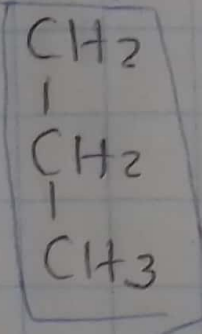 CH2
|
CH2
|
CH3